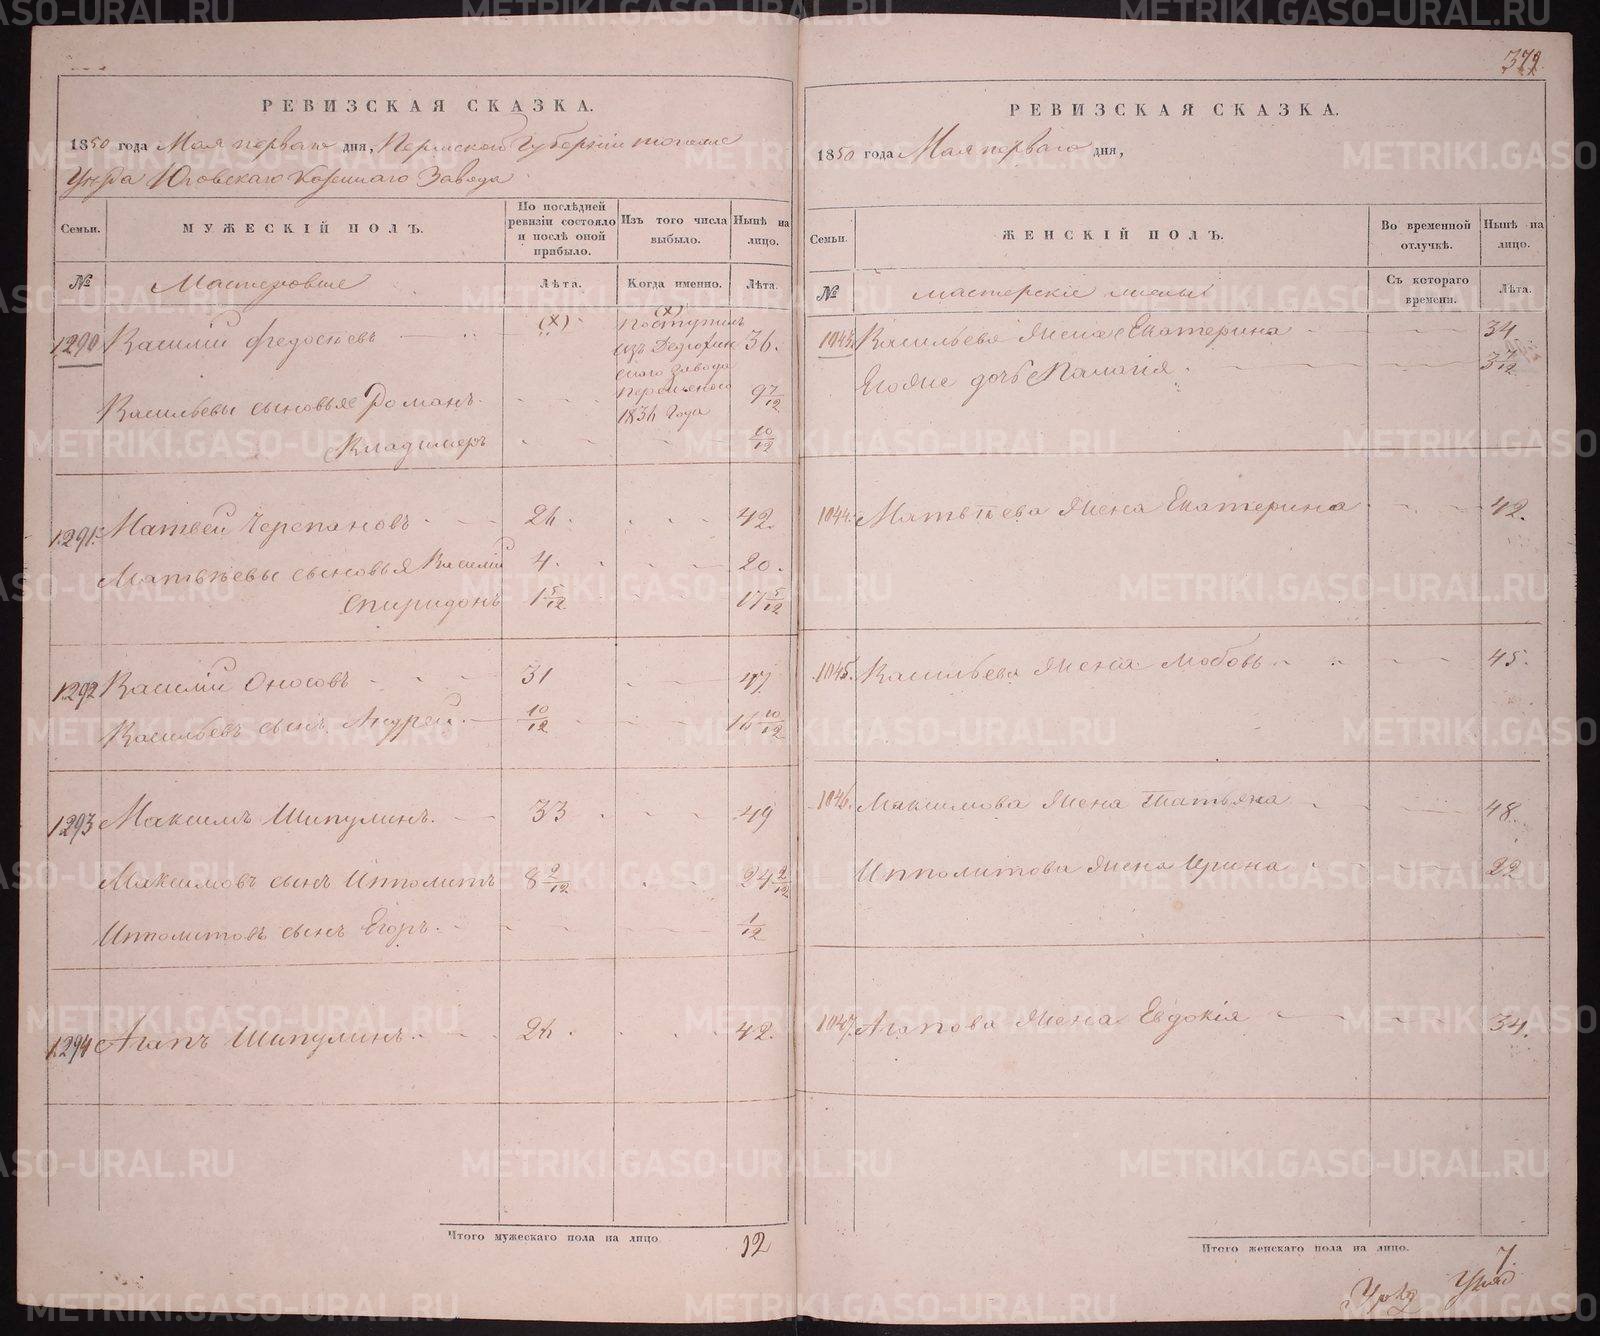 372
РЕВИЗСКАЯ СКАЗКА.
1850 года Мая перваго дня, Пермской Губерніи тогоже
Уезда Юговскаго Казеннаго Завода
Семьи.
МУЖЕСКІЙ ПОЛЪ.
По послѣдней ревизіи состояло и послѣ оной прибыло.
Изъ того числа выбыло.
Нынѣ на лицо.
№
Мастеровые
Лѣта.
Когда именно.
Лѣта.
1290 Василій Федосѣевъ (X) (X) поступилъ изъ 36.
завода
Васильевы сыновья Романъ 9 7/12
1834 года
Владимеръ 10/12
1291. Матвей Черепановъ 26. 42.
Матвѣевы сыновья Василій 4. 20.
Спиридонъ 1 5/12 17 5/12
1292 Василій Оносовъ 31 47
Васильевъ сынъ Андрей 10/12 16 10/12
1293 Максимъ Шипулинъ 33 49
Максимовъ сынъ Ипполитъ 8 2/12 24 2/12
Ипполитовъ сынъ Егоръ 1/12
1294 Агапъ Шипулинъ 26. 42.
Итого мужескаго пола на лицо 12
РЕВИЗСКАЯ СКАЗКА.
1850 года Мая перваго дня,
Семьи.
ЖЕНСКІЙ ПОЛЪ.
Во временной отлучкѣ.
Нынѣ на лицо.
№
мастерскіе жены
Съ котораго времени.
Лѣта.
1043. Васильева жена Екатерина 34
Егоже дочь Палагія 3 7/12
1044. Матвѣева жена Екатерина 42.
1045. Васильева жена Любовь 45.
1046. Максимова жена Татьяна 48.
Ипполитова жена Ирина 22
1047. Агапова жена Евдокія 34.
Итого женскаго пола на лицо. 7.
METRIKI.GASO-URAL.RU